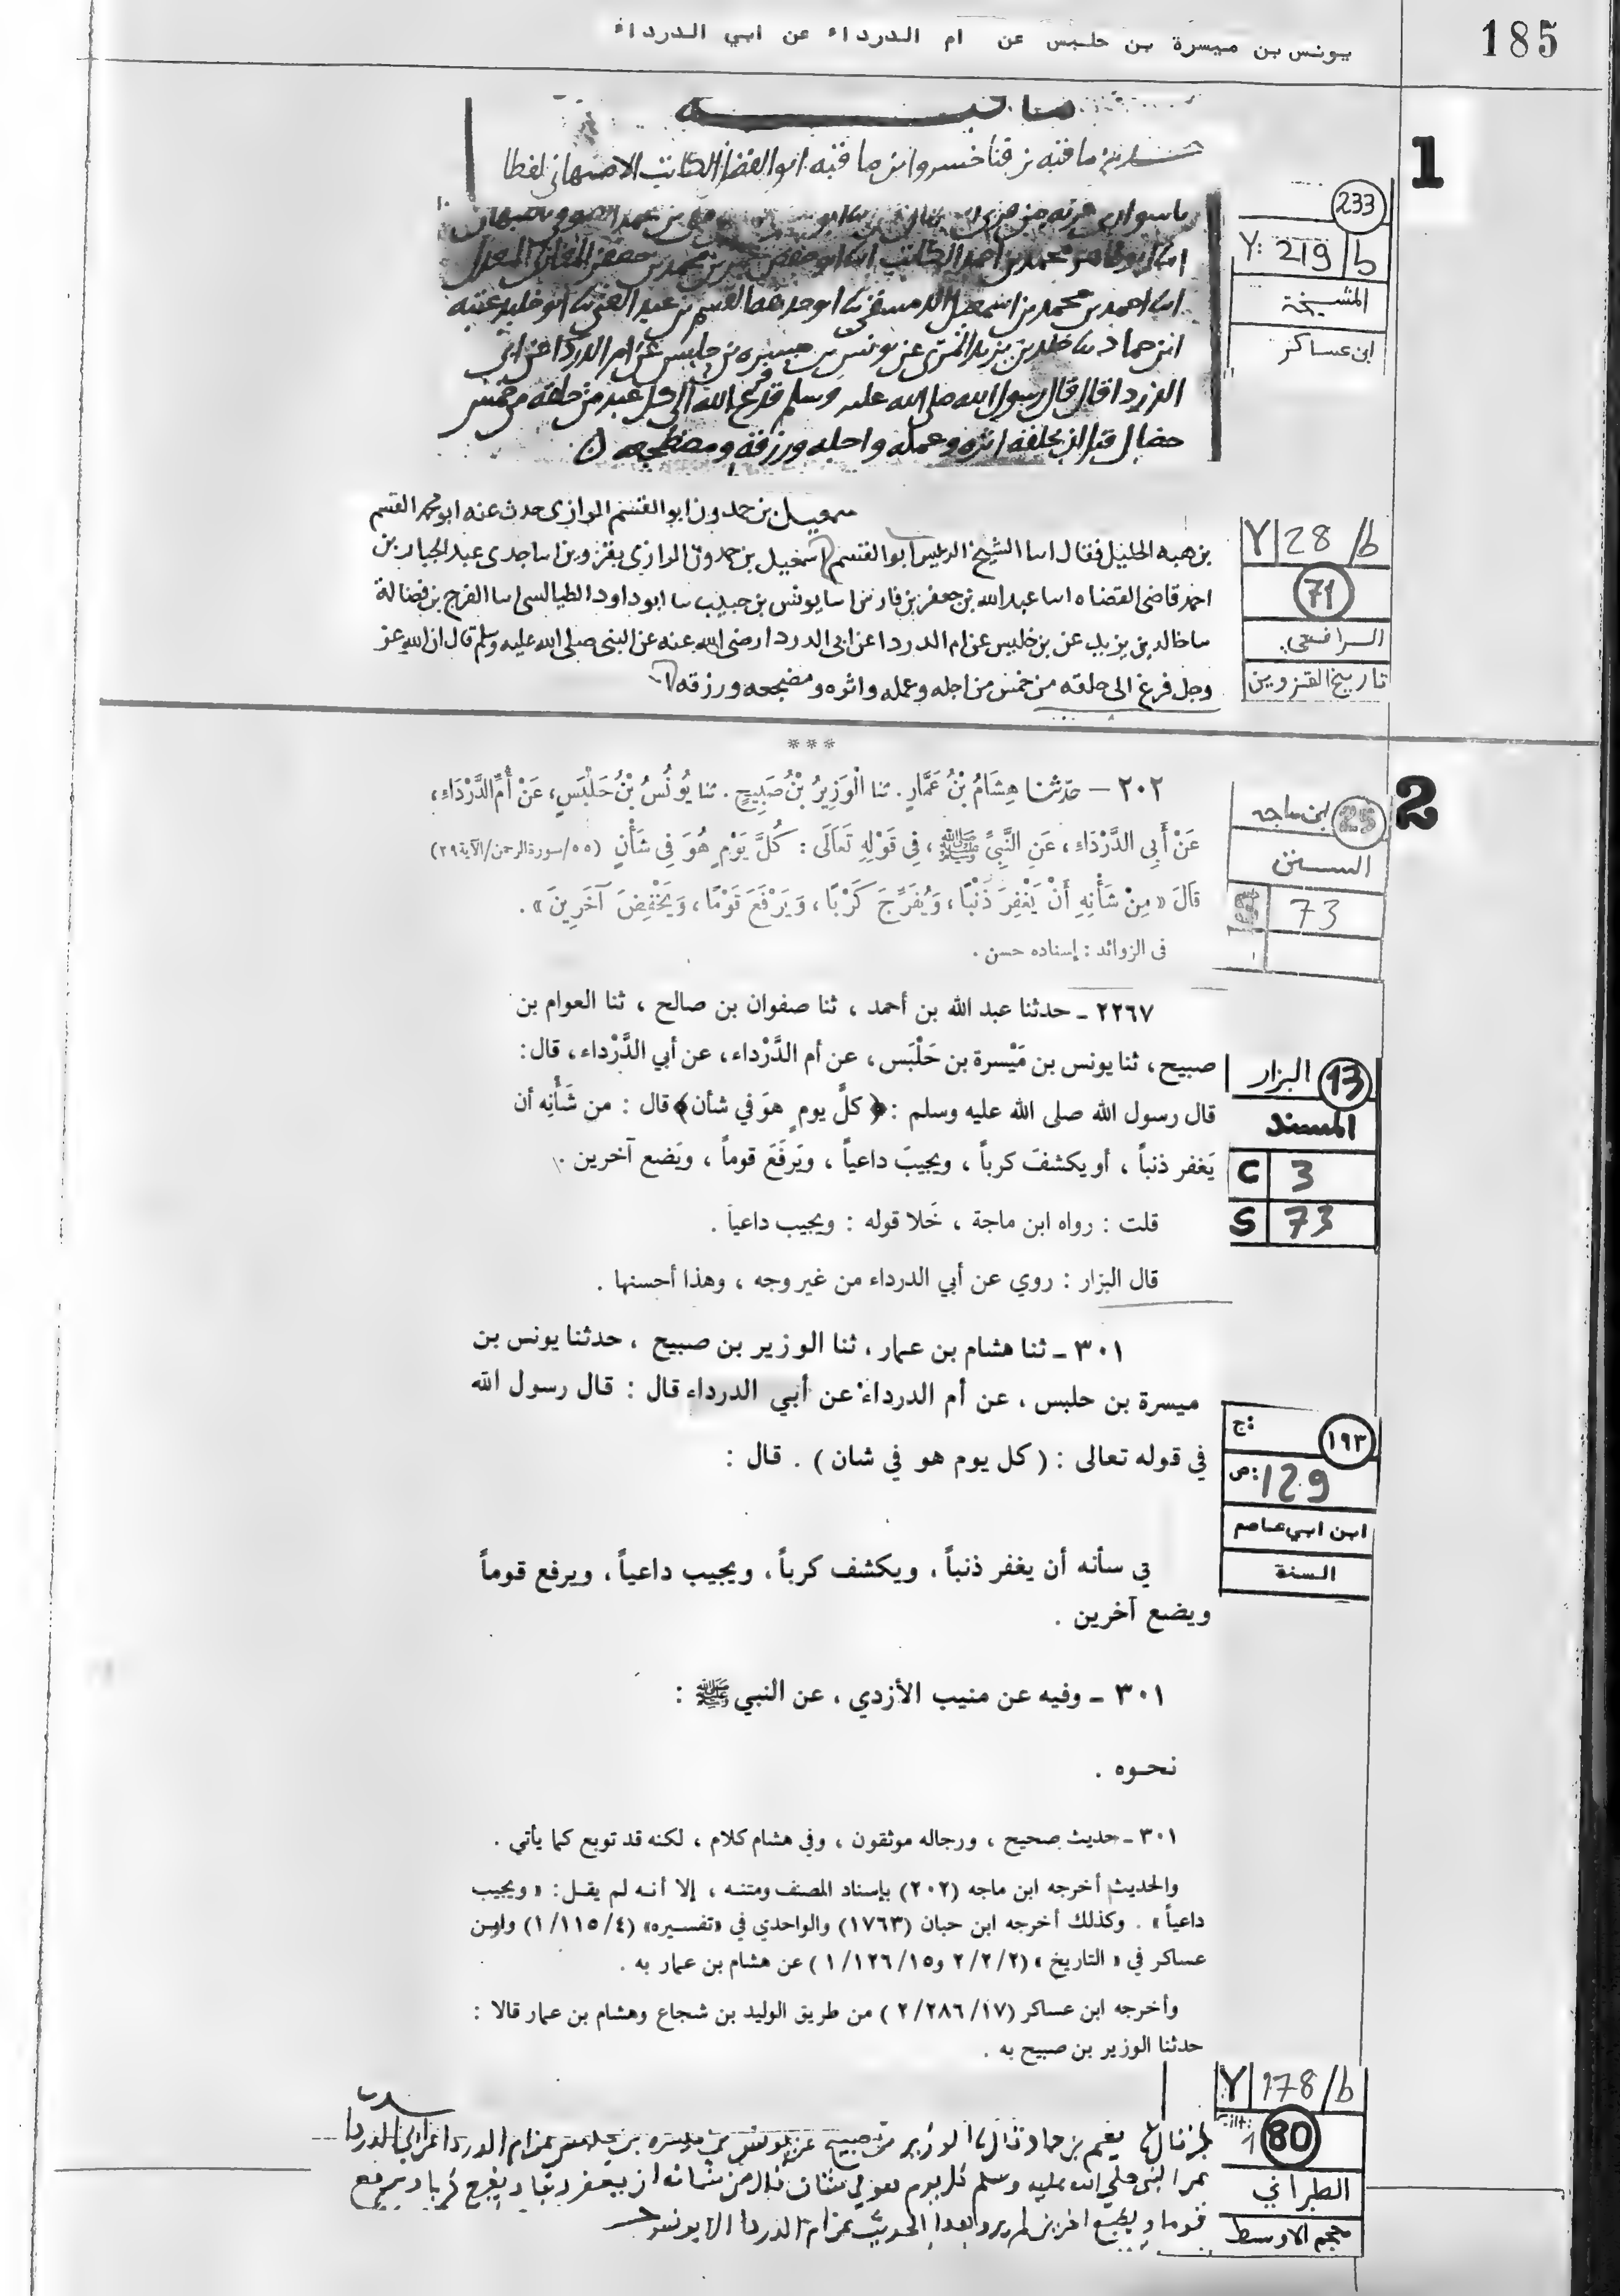 185
يونس بن ميسرة بن حلبس عن ام الدرداء عن ابي الدرداء
1
233
Y: 219 b
المشيخة
ابن عساكر
ابو الفضل الكاتب الاصبهاني لفظا
محمد بن احمد الكاتب
احمد بن محمد بن اسمعيل الدمشقي
بن يزيد المري عن يونس بن ميسره بن حلبس عن ام الدرداء عن ابي
الدرداء قال قال رسول الله صلى الله عليه وسلم فرغ الله الى كل عبد من خلقه من خمس
خصال قبل ان يخلقه اثره وعمله واجله ورزقه ومضجعه
Y 28 /b
71
الرافعي
تاريخ القزوين
بن حمدون ابو القسم الرازي حدث عنه ابو محمد القسم
بن هبه الخليل فقال انا الشيخ الرئيس ابو القسم اسمعيل بن حمدون الرازي بقزوين انا جدي عبد الجبار بن
احمد قاضي القضاه انا عبد الله بن جعفر بن فارس انا يونس بن حبيب ثنا ابو داود الطيالسي ثنا الفرج بن فضالة
ثنا خالد بن يزيد عن بن حلبس عن ام الدرداء عن ابي الدرداء رضي الله عنه عن النبي صلى الله عليه وسلم قال ان الله عز
وجل فرغ الى خلقه من خمس من اجله وعمله واثره ومضجعه ورزقه
***
2
25 ابن ماجه
السنن
73
٢٠٢ – حدّثنا هِشَامُ بْنُ عَمَّارٍ. ثنا الْوَزِيرُ بْنُ صَبِيحٍ. ثنا يُونُسُ بْنُ حَلْبَسٍ، عَنْ أُمِّ الدَّرْدَاءِ،
عَنْ أَبِي الدَّرْدَاءِ، عَنِ النَّبِيِّ ﷺ، فِي قَوْلِهِ تَعَالَى: كُلَّ يَوْمٍ هُوَ فِي شَأْنٍ (٥٥/سورة الرحمن/الآية ٢٩)
قَالَ « مِنْ شَأْنِهِ أَنْ يَغْفِرَ ذَنْبًا، وَيُفَرِّجَ كَرْبًا، وَيَرْفَعَ قَوْمًا، وَيَخْفِضَ آخَرِينَ ».
فى الزوائد: إسناده حسن.
٢٢٦٧ ـ حدثنا عبد الله بن أحمد ، ثنا صفوان بن صالح ، ثنا العوام بن
صبيح، ثنا يونس بن مَيْسرة بن حَلْبَس، عن أم الدَّرْداء، عن أبي الدَّرْداء، قال:
قال رسول الله صلى الله عليه وسلم : ﴿ كلَّ يوم هوَ في شأن﴾ قال : من شَأْنِه أن
يَغفر ذنباً ، أو يكشفَ كرباً ، ويجيبَ داعياً ، ويَرفَعَ قوماً ، ويَضع آخرين .
13 البزار
المسند
C 3
S 73
قلت : رواه ابن ماجة ، خَلا قوله : ويجيب داعياً .
قال البزار : روي عن أبي الدرداء من غير وجه ، وهذا أحسنها .
٣٠١ ـ ثنا هشام بن عمار، ثنا الوزير بن صبيح ، حدثنا يونس بن
ميسرة بن حلبس ، عن أم الدرداء عن أبي الدرداء قال : قال رسول الله
في قوله تعالى : ( كل يوم هو في شان ) . قال :
ج:
١٩٣
ص: 129
ابن ابي عاصم
السنة
في سأنه أن يغفر ذنباً، ويكشف كرباً، ويجيب داعياً، ويرفع قوماً
ويضع آخرين .
٣٠١ ـ وفيه عن منيب الأزدي ، عن النبي ﷺ :
نحوه .
٣٠١ ـ حديث صحيح ، ورجاله موثقون ، وفي هشام كلام ، لكنه قد توبع كما يأتي .
والحديث أخرجه ابن ماجه (٢٠٢) بإسناد المصنف ومتنه ، إلا أنه لم يقل: « ويجيب
داعياً » . وكذلك أخرجه ابن حبان (١٧٦٣) والواحدي في «تفسيره» (١/١١٥/٤) وابن
عساكر في « التاريخ » (٢/٢/٢ و١٥/١٢٦/١ ) عن هشام بن عمار به .
وأخرجه ابن عساكر (١٧/٢٨٦/٢ ) من طريق الوليد بن شجاع وهشام بن عمار قالا :
حدثنا الوزير بن صبيح به .
Y 178/b
80
الطبراني
معجم الاوسط
نعيم بن حماد قال نا الوزير بن صبيح عن يونس بن ميسره بن حلبس عن ام الدرداء عن ابي الدرداء
عن النبي صلى الله عليه وسلم كل يوم هو في شان قال من شانه ان يغفر ذنبا ويفرج كربا ويرفع
قوما ويضع اخرين لم يرو هذا الحديث عن ام الدرداء الا يونس